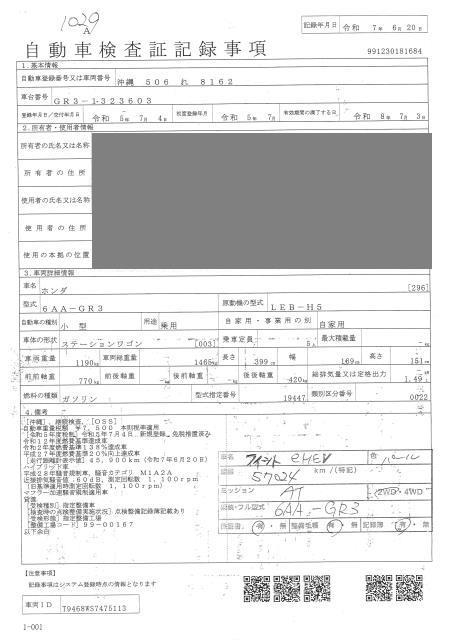 1029
A
記録年月日 令和 7年 6月 20日
自動車検査証記録事項
991230181684
1.基本情報
自動車登録番号又は車両番号 沖縄 506 れ 8162
車台番号 GR3-1323603
登録年月日/交付年月日 令和 5年 7月 4日 初度登録年月 令和 5年 7月 有効期間の満了する日 令和 8年 7月 3日
2.所有者・使用者情報
所有者の氏名又は名称
所有者の住所
使用者の氏名又は名称
使用者の住所
使用の本拠の位置
3.車両詳細情報
車名 ホンダ [296]
型式 6AA-GR3 原動機の型式 LEB-H5
自動車の種別 小型 用途 乗用 自家用・事業用の別 自家用
車体の形状 ステーションワゴン [003] 乗車定員 5人 最大積載量
車両重量 1190kg 車両総重量 1465kg 長さ 399cm 幅 169cm 高さ 151cm
前前軸重 770kg 前後軸重 後前軸重 後後軸重 420kg 総排気量又は定格出力 1.49
燃料の種類 ガソリン 型式指定番号 19447 類別区分番号 0022
4.備考
[沖縄],継続検査,[OSS]
自動車重量税額 ¥7,500 本則税率適用
令和12年度燃費基準達成車
令和2年度燃費基準138%達成車
平成27年度燃費基準20%向上達成車
[走行距離計表示値] 45,900km (令和7年6月20日)
ハイブリッド車
平成28年騒音規制車、騒音カテゴリ M1A2A
マフラー加速騒音規制適用車
[受検種別] 指定整備車
[検査時の点検整備実施状況] 点検整備記録簿記載あり
[受検形態] 指定整備工場
[整備工場コード] 99-00167
以下余白
車名 フィット eHEV 色 パール
57024 km/(特記)
ミッション AT 2WD・4WD
型式 6AA-GR3
保証書 有・無 整備手帳 有・無 記録簿 有・無
【注意事項】
記録事項はシステム登録時点の情報となります
車両ID T9468WS7475113
1-001